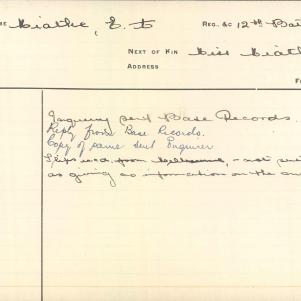 Miatke, E. F
REG. &c 12th Bat
NEXT OF KIN Miss Miatk
ADDRESS
F
Inquiry sent Base Records.
Reply from Base Records.
Copy of same sent Inquirer
from Melbourne, - not
as giving no information on the